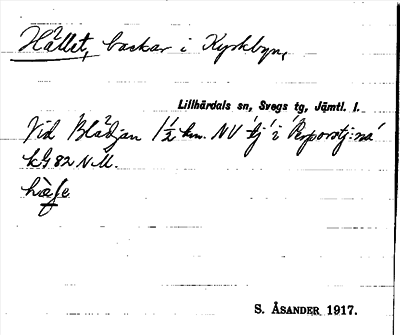 Hållet, backar i Kyrkbyn,
Lillhärdals sn, Svegs tg, Jämtl. l.
Vid Blädjan 1½ km. NV
kG 82 N M.
S. ÅSANDER 1917.